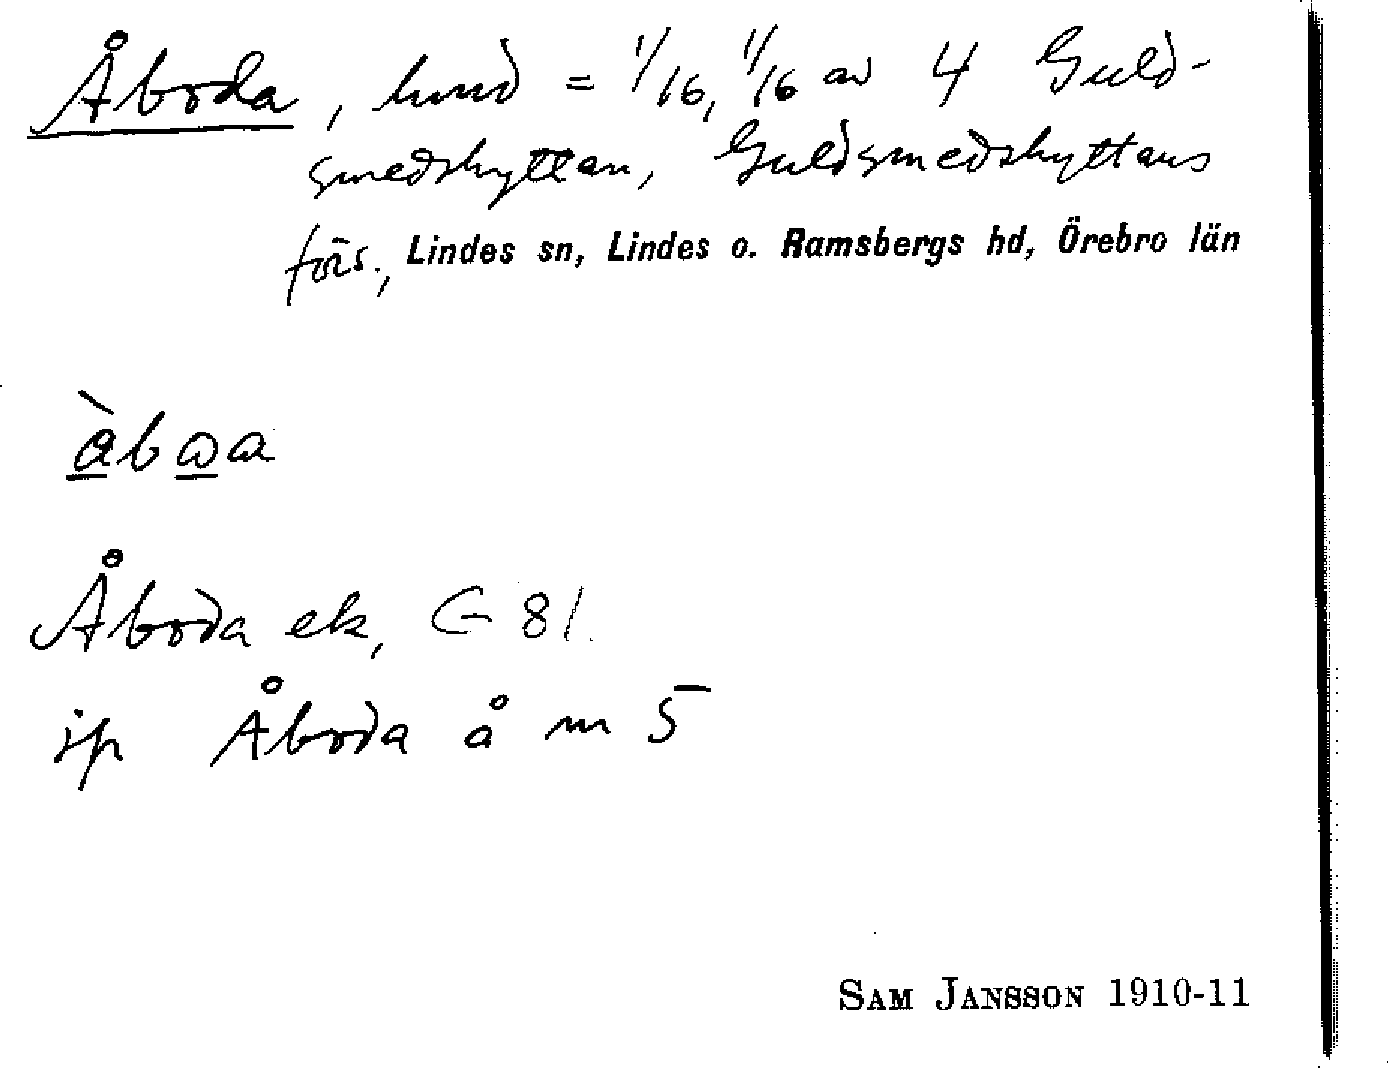 Åboda, hmd = 1/16, 1/16 av 4 Guld-
smedshyttan, Guldsmedshyttans
förs., Lindes sn, Lindes o. Ramsbergs hd, Örebro län
Åboda ek, G 81.
ip Åboda å m 5
SAM JANSSON 1910-11